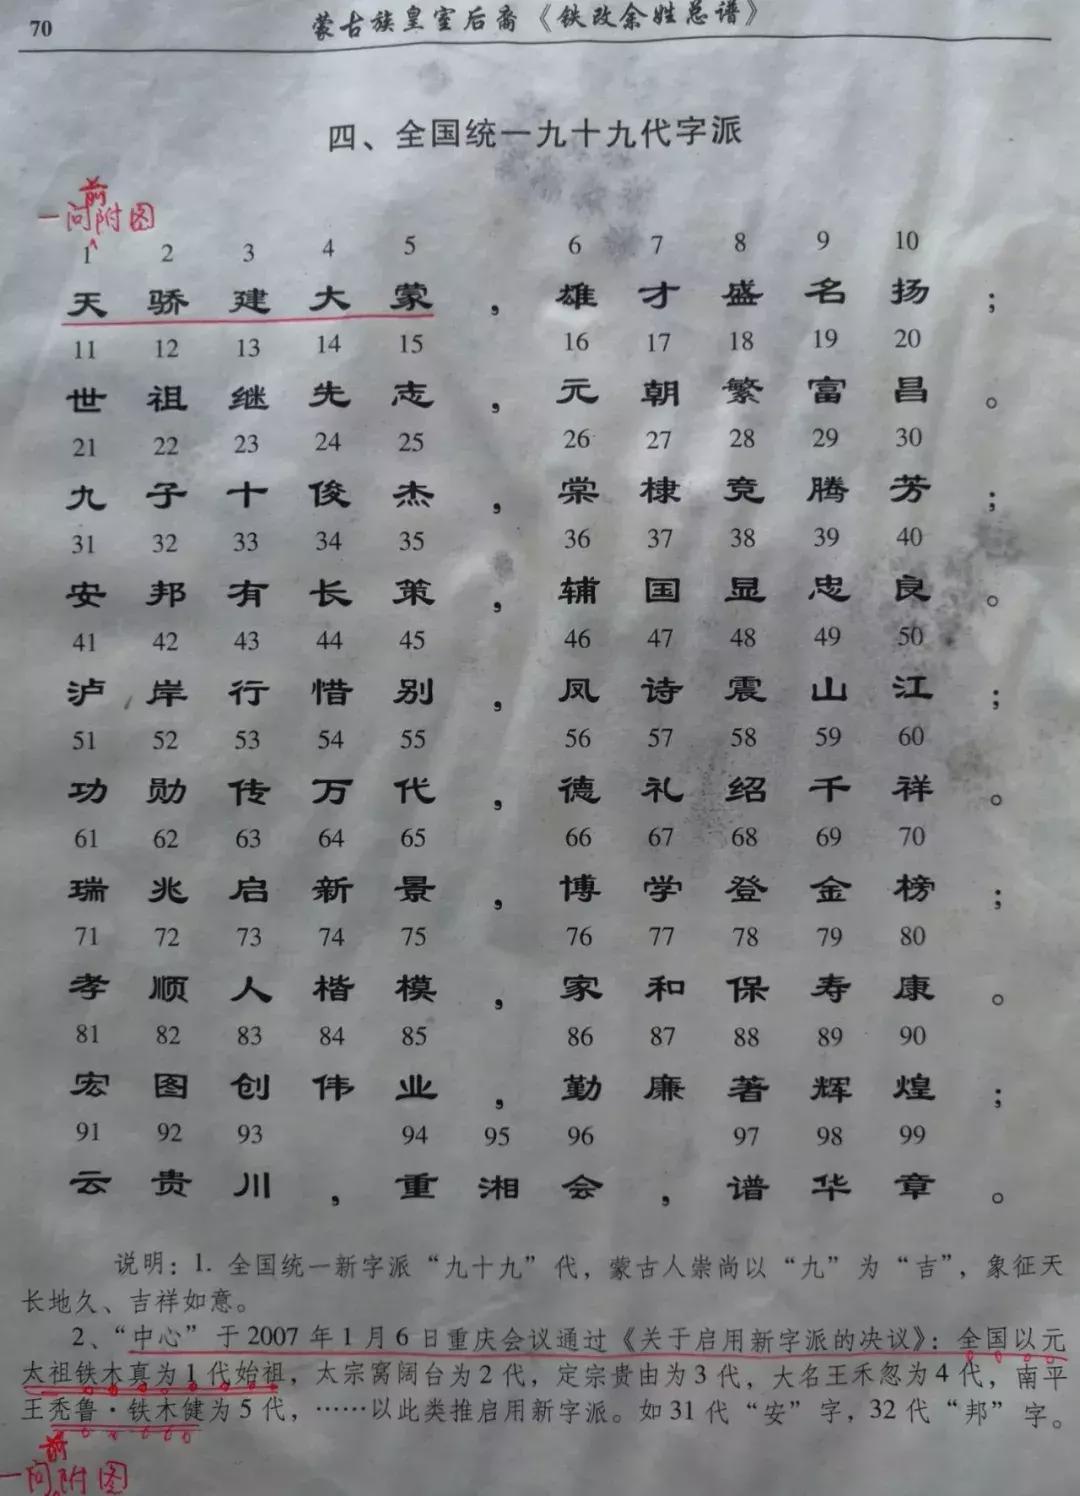 70
蒙古族皇室后裔《铁改余姓总谱》
四、全国统一九十九代字派
前
一问附图
1 2 3 4 5 6 7 8 9 10
天骄建大蒙，雄才盛名扬；
11 12 13 14 15 16 17 18 19 20
世祖继先志，元朝繁富昌。
21 22 23 24 25 26 27 28 29 30
九子十俊杰，棠棣竞腾芳；
31 32 33 34 35 36 37 38 39 40
安邦有长策，辅国显忠良。
41 42 43 44 45 46 47 48 49 50
泸岸行惜别，凤诗震山江；
51 52 53 54 55 56 57 58 59 60
功勋传万代，德礼绍千祥。
61 62 63 64 65 66 67 68 69 70
瑞兆启新景，博学登金榜；
71 72 73 74 75 76 77 78 79 80
孝顺人楷模，家和保寿康。
81 82 83 84 85 86 87 88 89 90
宏图创伟业，勤廉著辉煌；
91 92 93 94 95 96 97 98 99
云贵川，重湘会，谱华章。
说明：1. 全国统一新字派“九十九”代，蒙古人崇尚以“九”为“吉”，象征天
长地久、吉祥如意。
2、“中心”于2007年1月6日重庆会议通过《关于启用新字派的决议》：全国以元
太祖铁木真为1代始祖，太宗窝阔台为2代，定宗贵由为3代，大名王禾忽为4代，南平
王秃鲁·铁木健为5代，……以此类推启用新字派。如31代“安”字，32代“邦”字。
前
一问附图